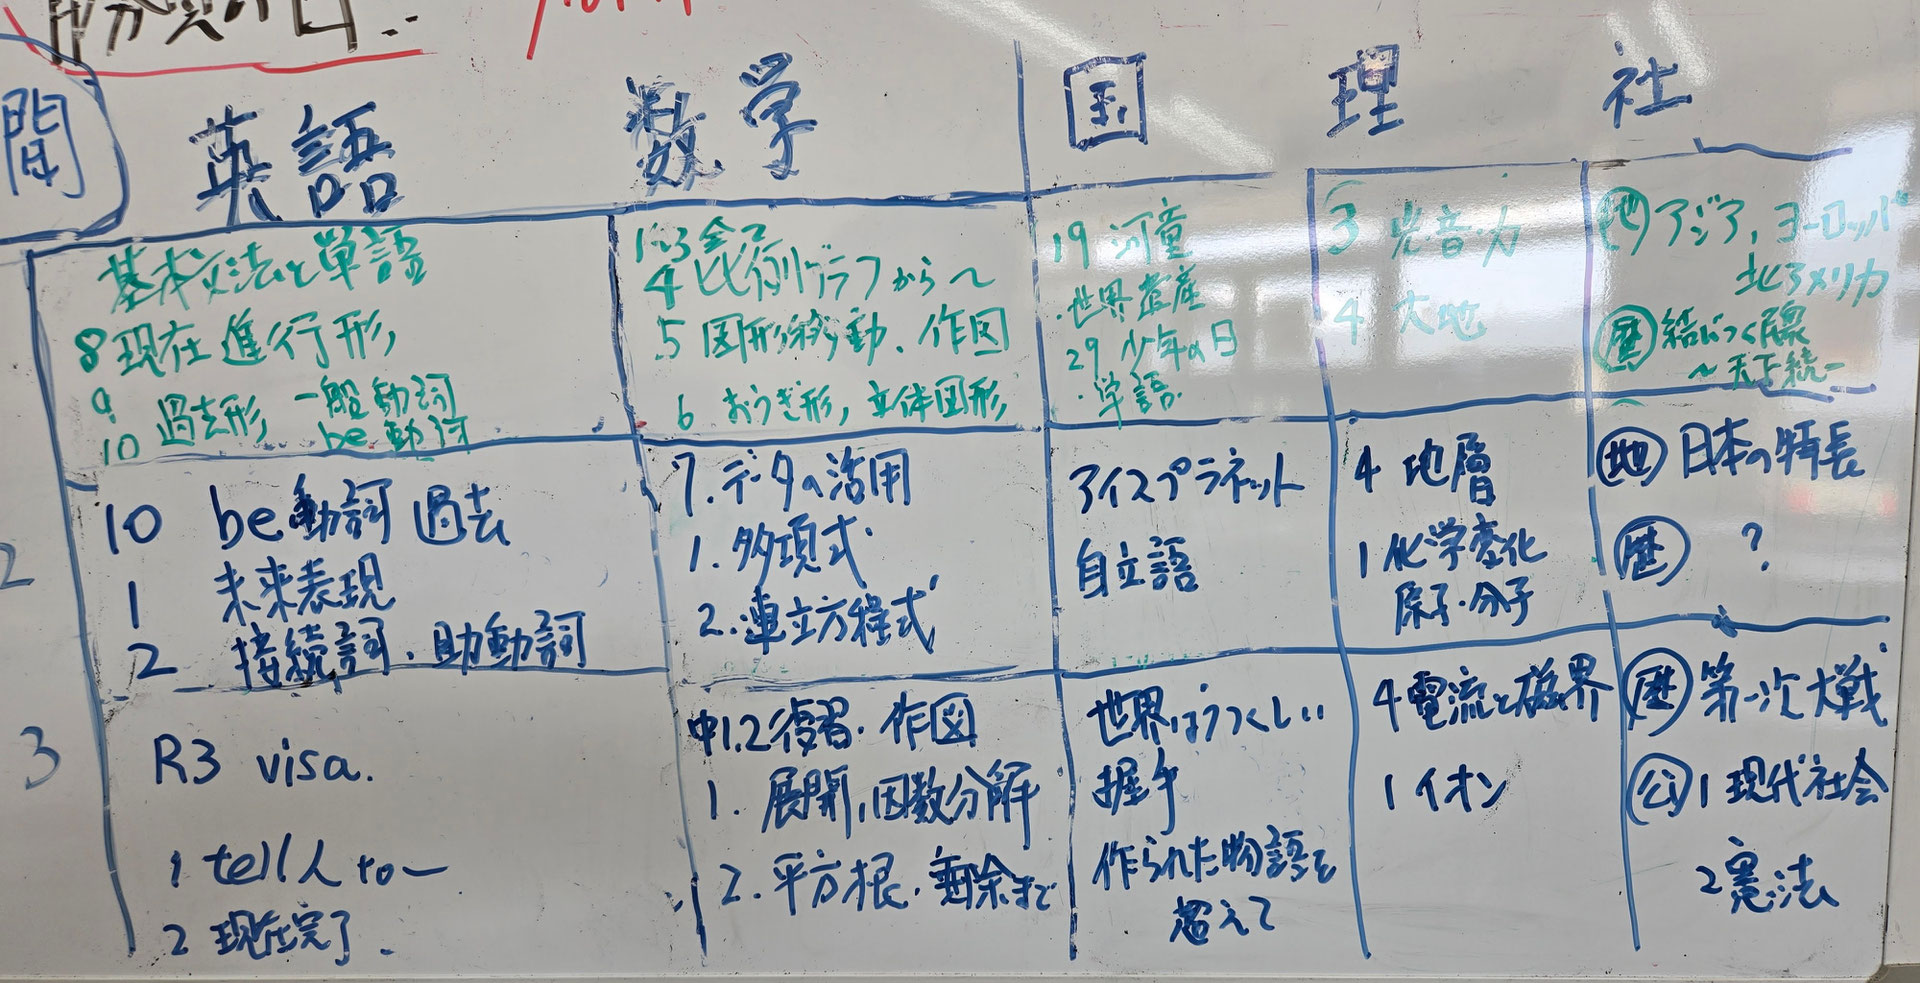 間
英語 数学 国 理 社
基本文法と単語
8 現在進行形,
9 過去形 一般動詞
10 be動詞
1~3 全て
4 比例グラフから~
5 図形移動、作図
6 おうぎ形, 立体図形,
19 河童
・世界遺産
29 少年の日
・単語.
3 光音力
4 大地
地 アジア, ヨーロッパ
北アメリカ
歴 結びつく
~天下統一
2
10 be動詞 過去
1 未来表現
2 接続詞、助動詞
7. データの活用
1. 多項式
2. 連立方程式
アイスプラネット
自立語
4 地層
1 化学変化
原子・分子
地 日本の特長
歴 ?
3
R3 visa.
1 tell 人 to ー
2 現在完了.
中1,2復習・作図
1. 展開, 因数分解
2. 平方根・乗除まで
世界はうつくしい
握手
作られた物語を
超えて
4 電流と磁界
1 イオン
歴 第一次大戦
公 1 現代社会
2 憲法